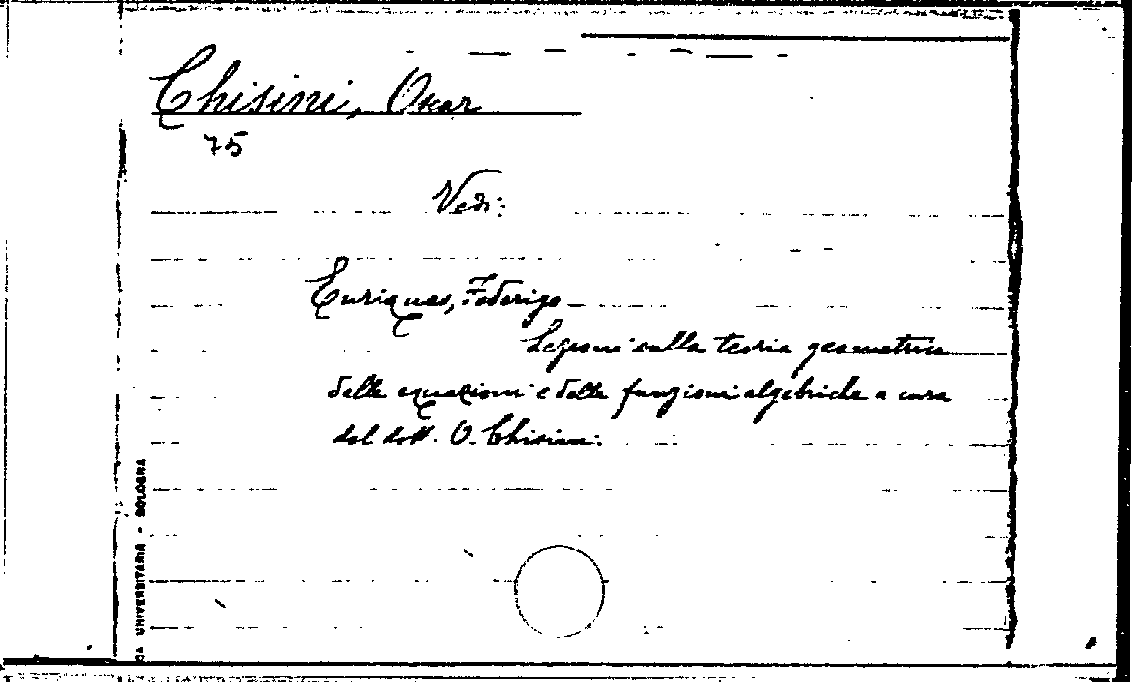 Chisini, Oscar
75
Vedi:
Enriques, Federigo
Lezioni sulla teoria geometrica
delle equazioni e delle funzioni algebriche a cura
del dott. O. Chisini.
CA UNIVERSITARIA - BOLOGNA